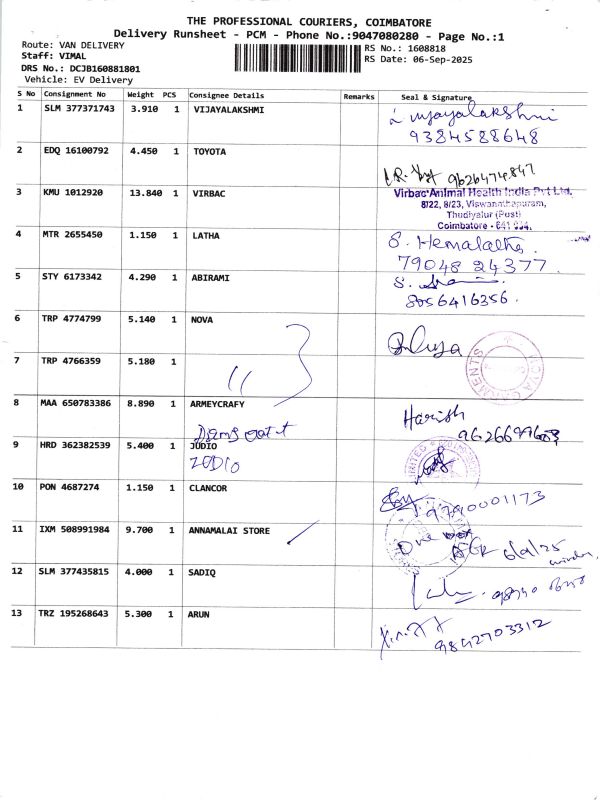 THE PROFESSIONAL COURIERS, COIMBATORE
Delivery Runsheet - PCM - Phone No.:9047080280 - Page No.:1
Route: VAN DELIVERY
RS No.: 1608818
Staff: VIMAL
RS Date: 06-Sep-2025
DRS No.: DCJB160881801
Vehicle: EV Delivery
S No Consignment No Weight PCS Consignee Details Remarks Seal & Signature
1 SLM 377371743 3.910 1 VIJAYALAKSHMI
vijayalakshmi
9384588648
2 EDQ 16100792 4.450 1 TOYOTA
9626474847
3 KMU 1012920 13.840 1 VIRBAC
Virbac Animal Health India Pvt Ltd.
8/22, 8/23, Viswanathapuram,
Thudiyalur (Post)
Coimbatore - 641 034.
4 MTR 2655450 1.150 1 LATHA
S. Hemalatha
79048 24377
5 STY 6173342 4.290 1 ABIRAMI
8056416356
6 TRP 4774799 5.140 1 NOVA
7 TRP 4766359 5.180 1
8 MAA 650783386 8.890 1 ARMEYCRAFY
Harish
9 HRD 362382539 5.400 1 JUDIO
ZUDIO
10 PON 4687274 1.150 1 CLANCOR
9790001173
11 IXM 508991984 9.700 1 ANNAMALAI STORE
One box
6/9/25
12 SLM 377435815 4.000 1 SADIQ
13 TRZ 195268643 5.300 1 ARUN
9842703312